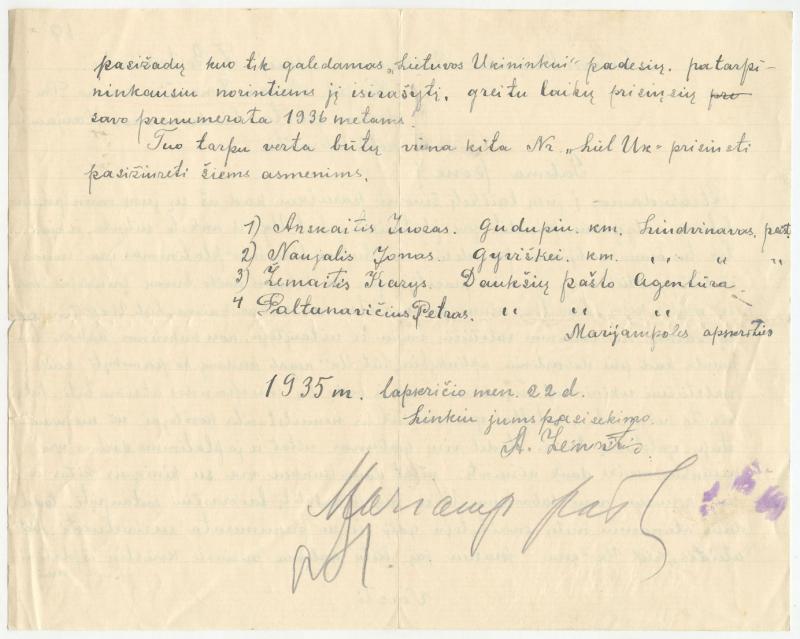 pasižadų kuo tik galėdamas „Lietuvos Ukininkui" padesių. patarpi-
ninkausiu norintiems jį isirašytį, greitu laikų prisiųsių pre
savo prenumerata 1936 metams.
Tuo tarpu verta būtų viena kita Nr. „Liet Uk" prisiusti
pasižiureti šiems asmenims.
1) Anskaitis Juozas. Gudupiu. km. Liudvinavas. pašt.
2) Naujalis Jonas. Gyviškei. km. „ „ „
3) Žemaitis Kazys. Daukšių pašto Agentūra
4 Paltanavičius Petras. „ „ „
Marijampolės apskrities
1935 m. lapkričio men. 22 d.
Linkiu jums pasisekimo.
A. Žemaitis
Mariamp pašt